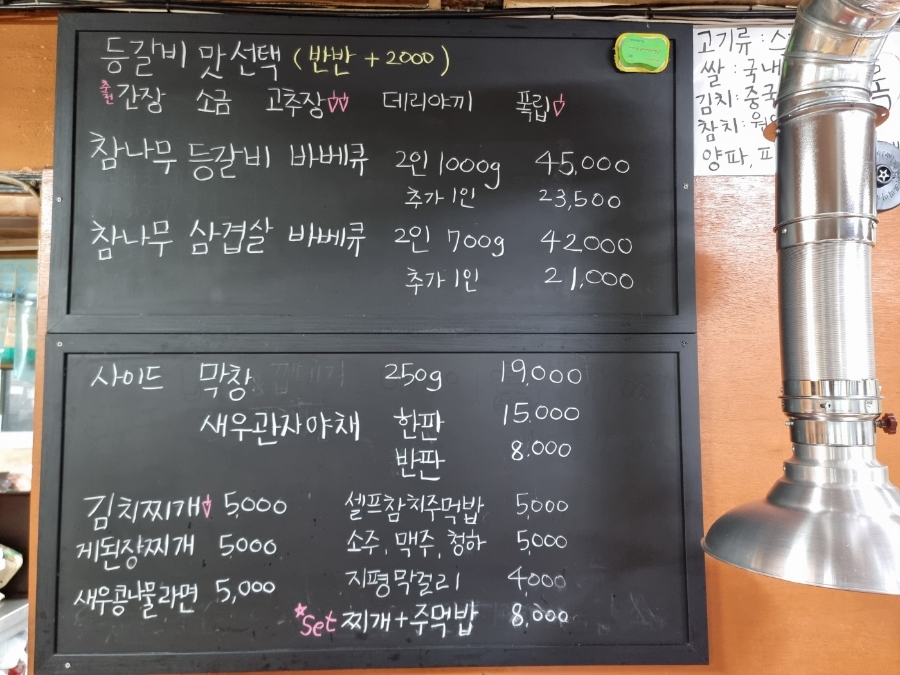 등갈비 맛선택 (반반 + 2000)
추천 간장 소금 고추장 데리야끼 폭립
참나무 등갈비 바베큐 2인 1000g 45,000
추가 1인 23,500
참나무 삼겹살 바베큐 2인 700g 42000
추가 1인 21,000
사이드 막창 250g 19,000
새우관자야채 한판 15,000
반판 8,000
김치찌개 5,000 셀프참치주먹밥 5,000
게된장찌개 5000 소주, 맥주, 청하 5,000
새우콩나물라면 5,000 지평막걸리 4,000
Set 찌개+주먹밥 8,000
고기류 : 스
쌀 : 국내
김치 : 중국
참치 : 원
양파,